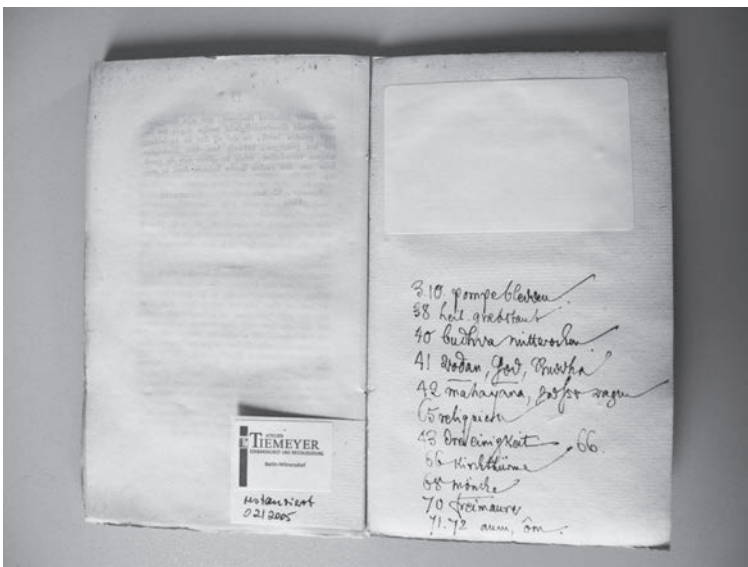 ATELIER
TIEMEYER
EINBANDKUNST UND RESTAURIERUNG
Berlin-Wilmersdorf
restauriert
02/2005
3.10. pompe bledsau
38 heil. grabstaub
40 budhva mittwochen
41 wodan, God,
42 mahayana, großer wagen
65 reliquien
43 Dreieinigkeit, 66.
66 Kirchthürme
68 mönche
70 freimaurer
71.72 aum, ôm.